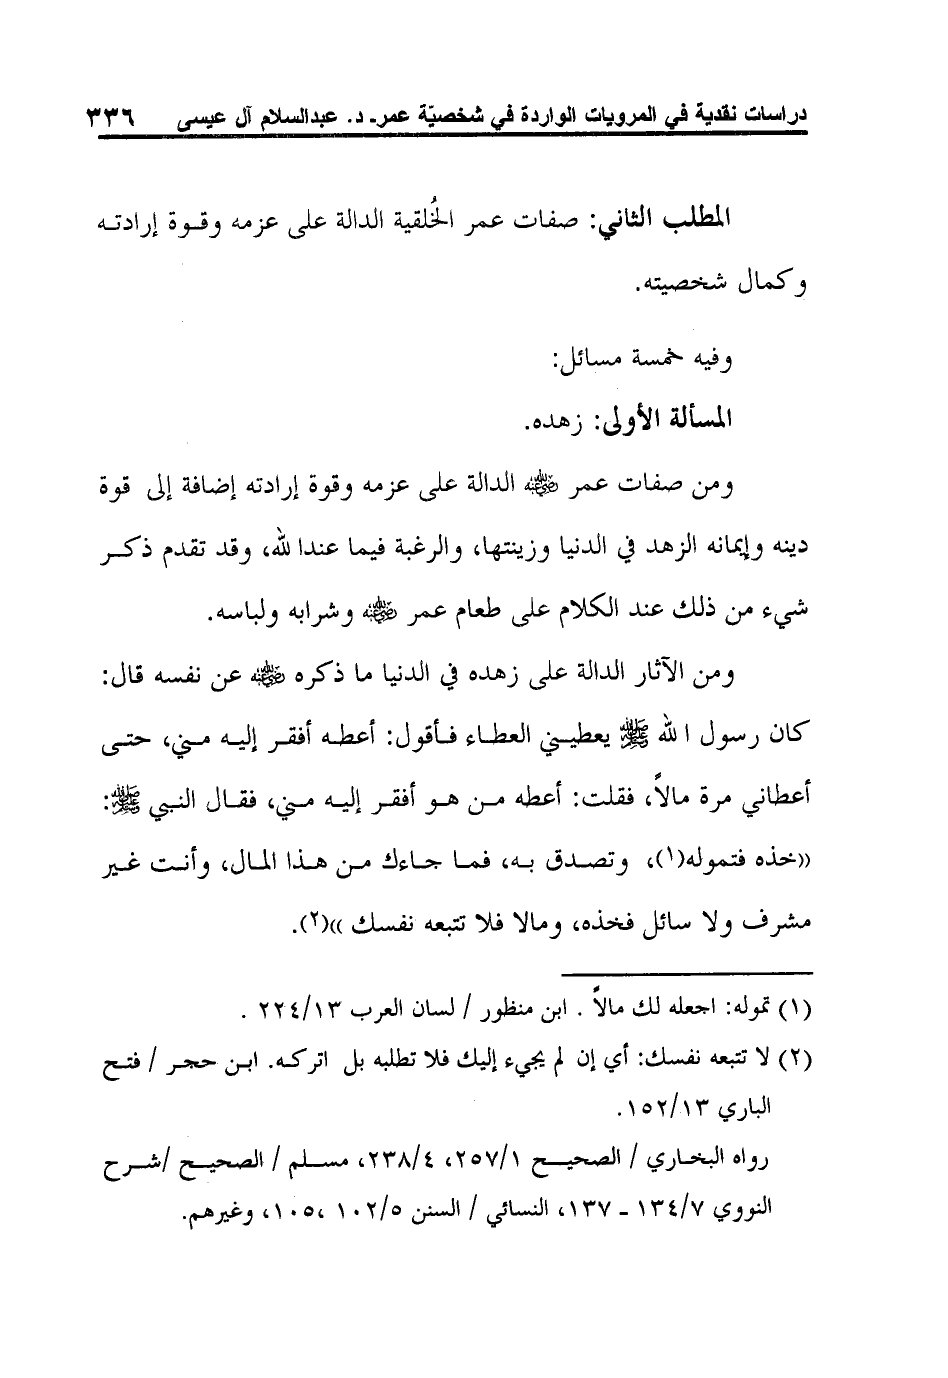 دراسات نقدية في المرويات الواردة في شخصيّة عمر - د. عبدالسلام آل عيسى ٣٣٦
المطلب الثاني: صفات عمر الخُلقية الدالة على عزمه وقوة إرادته
وكمال شخصيته.
وفيه خمسة مسائل:
المسألة الأولى: زهده.
ومن صفات عمر ﵁ الدالة على عزمه وقوة إرادته إضافة إلى قوة
دينه وإيمانه الزهد في الدنيا وزينتها، والرغبة فيما عندا لله، وقد تقدم ذكر
شيء من ذلك عند الكلام على طعام عمر ﵁ وشرابه ولباسه.
ومن الآثار الدالة على زهده في الدنيا ما ذكره ﵁ عن نفسه قال:
كان رسول ا لله ﷺ يعطيني العطاء فأقول: أعطه أفقر إليه مني، حتى
أعطاني مرة مالاً، فقلت: أعطه من هو أفقر إليه مني، فقال النبي ﷺ:
((خذه فتموله(١)، وتصدق به، فما جاءك من هذا المال، وأنت غير
مشرف ولا سائل فخذه، ومالا فلا تتبعه نفسك ))(٢).
(١) تموله: اجعله لك مالاً . ابن منظور / لسان العرب ٢٢٤/١٣ .
(٢) لا تتبعه نفسك: أي إن لم يجيء إليك فلا تطلبه بل اتركه. ابن حجر / فتح
الباري ١٥٢/١٣.
رواه البخاري / الصحيح ٢٥٧/١، ٢٣٨/٤، مسلم / الصحيح /شرح
النووي ١٣٤/٧ - ١٣٧، النسائي / السنن ١٠٢/٥ ،١٠٥، وغيرهم.